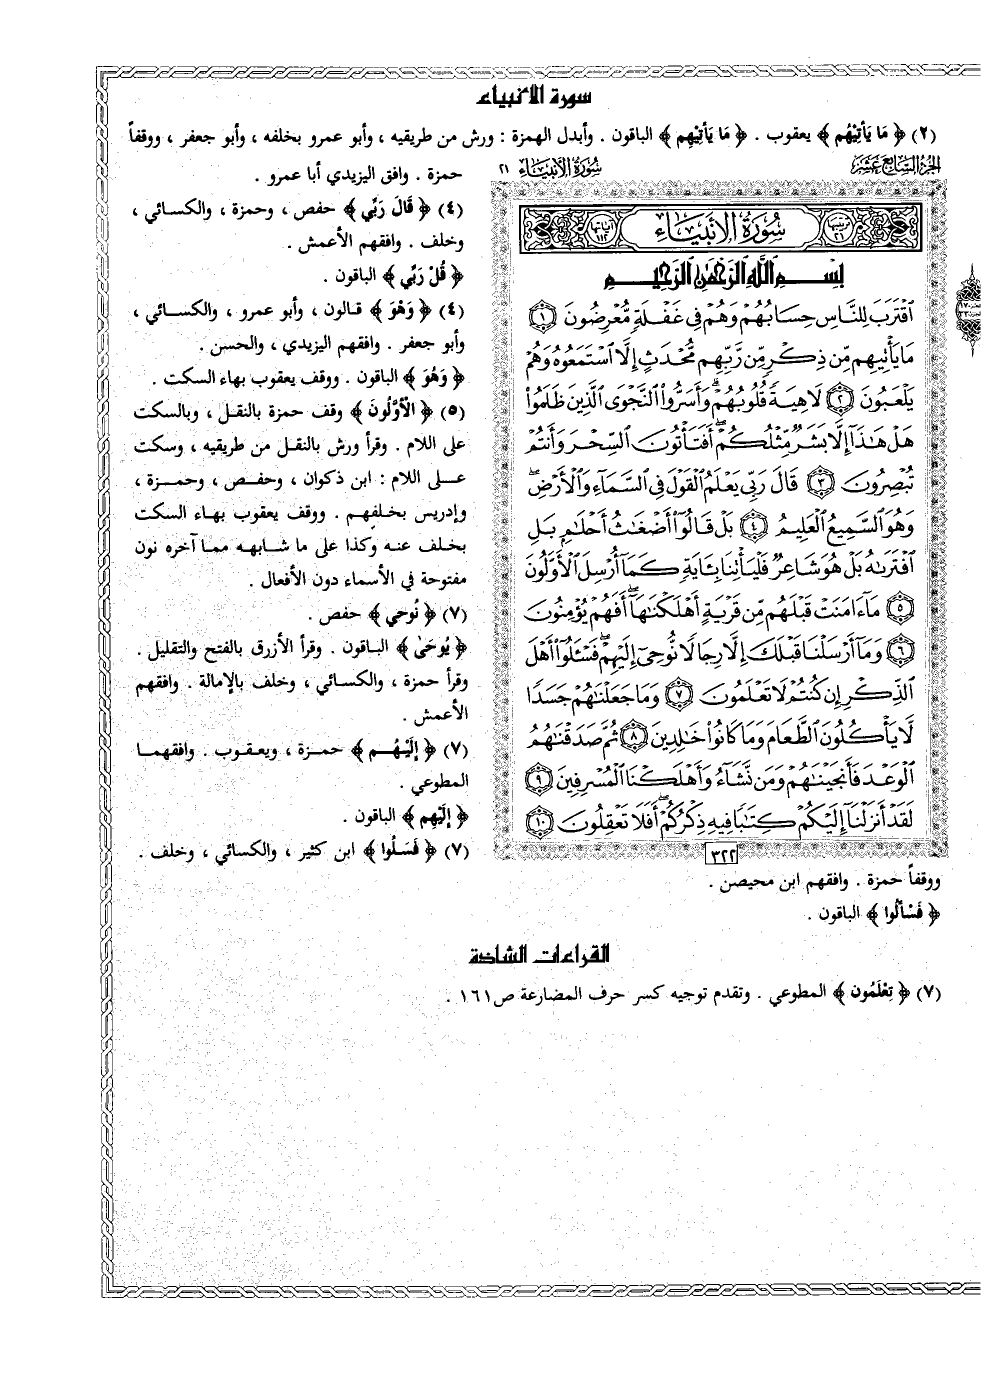 سورة الأنبياء
(٢) ﴿ مَا يَأْتِيْهُم ﴾ يعقوب . ﴿ مَا يَأْتِيْهِم ﴾ الباقون . وأبدل الهمزة : ورش من طريقيه ، وأبو عمرو بخلفه ، وأبو جعفر ، ووقفاً
حمزة . وافق اليزيدي أبا عمرو .
(٤) ﴿ قَالَ رَبِّي ﴾ حفص ، وحمزة ، والكسائي ،
وخلف . وافقهم الأعمش .
﴿ قُلْ رَبِّي ﴾ الباقون .
(٤) ﴿ وَهْوَ ﴾ قالون ، وأبو عمرو ، والكسائي ،
وأبو جعفر . وافقهم اليزيدي ، والحسن .
﴿ وَهُوَ ﴾ الباقون . ووقف يعقوب بهاء السكت .
(٥) ﴿ الْأَوَّلُونَ ﴾ وقف حمزة بالنقل ، وبالسكت
على اللام . وقرأ ورش بالنقل من طريقيه ، وسكت
على اللام : ابن ذكوان ، وحفص ، وحمزة ،
وإدريس بخلفهم . ووقف يعقوب بهاء السكت
بخلف عنه وكذا على ما شابهه مما آخره نون
مفتوحة في الأسماء دون الأفعال .
(٧) ﴿ نُوحِي ﴾ حفص .
﴿ يُوحَىٰ ﴾ الباقون . وقرأ الأزرق بالفتح والتقليل .
وقرأ حمزة ، والكسائي ، وخلف بالإمالة . وافقهم
الأعمش .
(٧) ﴿ إِلَيْهُم ﴾ حمزة ، ويعقوب . وافقهما
المطوعي .
﴿ إِلَيْهِم ﴾ الباقون .
(٧) ﴿ فَسَلُوا ﴾ ابن كثير ، والكسائي ، وخلف .
الجزء السابع عشر
سورة الأنبياء ٢١
سُورَةُ الأَنْبِيَاء
بِسْمِ اللَّهِ الرَّحْمَٰنِ الرَّحِيمِ
ٱقْتَرَبَ لِلنَّاسِ حِسَابُهُمْ وَهُمْ فِى غَفْلَةٍ مُّعْرِضُونَ ١
مَا يَأْتِيهِم مِّن ذِكْرٍ مِّن رَّبِّهِم مُّحْدَثٍ إِلَّا ٱسْتَمَعُوهُ وَهُمْ
يَلْعَبُونَ ٢ لَاهِيَةً قُلُوبُهُمْ ۗ وَأَسَرُّوا۟ ٱلنَّجْوَى ٱلَّذِينَ ظَلَمُوا۟
هَلْ هَٰذَآ إِلَّا بَشَرٌ مِّثْلُكُمْ ۖ أَفَتَأْتُونَ ٱلسِّحْرَ وَأَنتُمْ
تُبْصِرُونَ ٣ قَالَ رَبِّى يَعْلَمُ ٱلْقَوْلَ فِى ٱلسَّمَآءِ وَٱلْأَرْضِ ۖ
وَهُوَ ٱلسَّمِيعُ ٱلْعَلِيمُ ٤ بَلْ قَالُوٓا۟ أَضْغَٰثُ أَحْلَٰمٍۭ بَلِ
ٱفْتَرَىٰهُ بَلْ هُوَ شَاعِرٌ فَلْيَأْتِنَا بِـَٔايَةٍ كَمَآ أُرْسِلَ ٱلْأَوَّلُونَ
٥ مَآ ءَامَنَتْ قَبْلَهُم مِّن قَرْيَةٍ أَهْلَكْنَٰهَآ ۖ أَفَهُمْ يُؤْمِنُونَ
٦ وَمَآ أَرْسَلْنَا قَبْلَكَ إِلَّا رِجَالًا نُّوحِىٓ إِلَيْهِمْ ۖ فَسْـَٔلُوٓا۟ أَهْلَ
ٱلذِّكْرِ إِن كُنتُمْ لَا تَعْلَمُونَ ٧ وَمَا جَعَلْنَٰهُمْ جَسَدًا
لَّا يَأْكُلُونَ ٱلطَّعَامَ وَمَا كَانُوا۟ خَٰلِدِينَ ٨ ثُمَّ صَدَقْنَٰهُمُ
ٱلْوَعْدَ فَأَنجَيْنَٰهُمْ وَمَن نَّشَآءُ وَأَهْلَكْنَا ٱلْمُسْرِفِينَ ٩
لَقَدْ أَنزَلْنَآ إِلَيْكُمْ كِتَٰبًا فِيهِ ذِكْرُكُمْ ۖ أَفَلَا تَعْقِلُونَ ١٠
٣٢٢
ووقفاً حمزة . وافقهم ابن محيصن .
﴿ فَسْأَلُوا ﴾ الباقون .
القراءات الشاذة
(٧) ﴿ تِعْلَمُون ﴾ المطوعي . وتقدم توجيه كسر حرف المضارعة ص١٦١ .